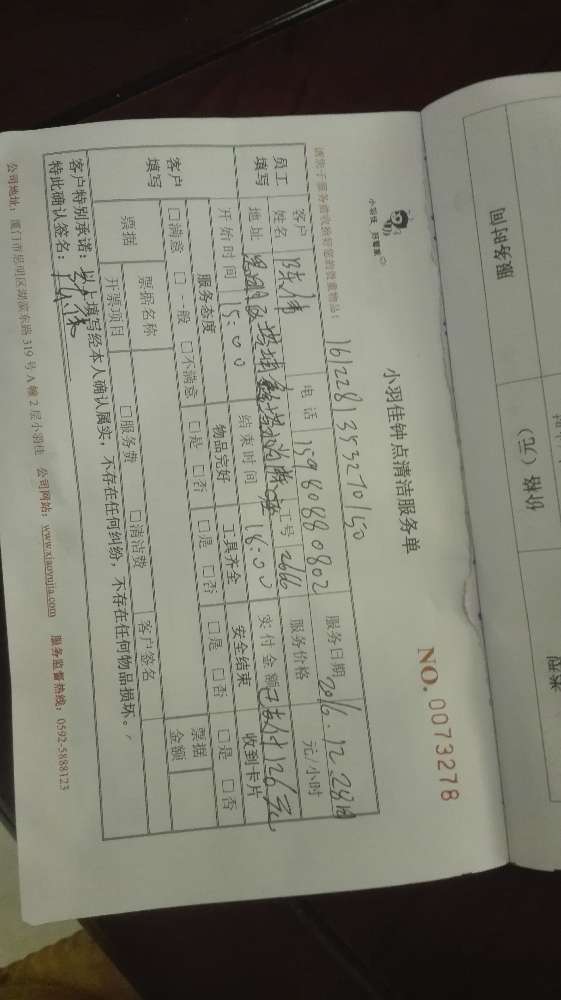 小羽佳 好管家
小羽佳钟点清洁服务单
NO. 0073278
161228135327050
客户姓名 陈伟 电话 15980880802 服务日期 2016.12.28日
地址 思明区 工号 2616 服务价格 元/小时
员工填写
开始时间 15:00 结束时间 18:00 实付金额 已支付126元
客户填写
服务态度 物品完好 工具齐全 安全结束 收到卡片
□满意 □一般 □不满意 □是 □否 □是 □否 □是 □否 □是 □否
票据 票据名称 票据金额
开票项目 □服务费 □清洁费 客户签名
客户特别承诺:以上填写经本人确认属实,不存在任何纠纷,不存在任何物品损坏。
特此确认签名:
公司地址:厦门市思明区湖滨东路 319 号 A 幢 2 层小羽佳 公司网站:www.xiaoyujia.com 服务监督热线:0592-5888123
服务时间
价格(元)